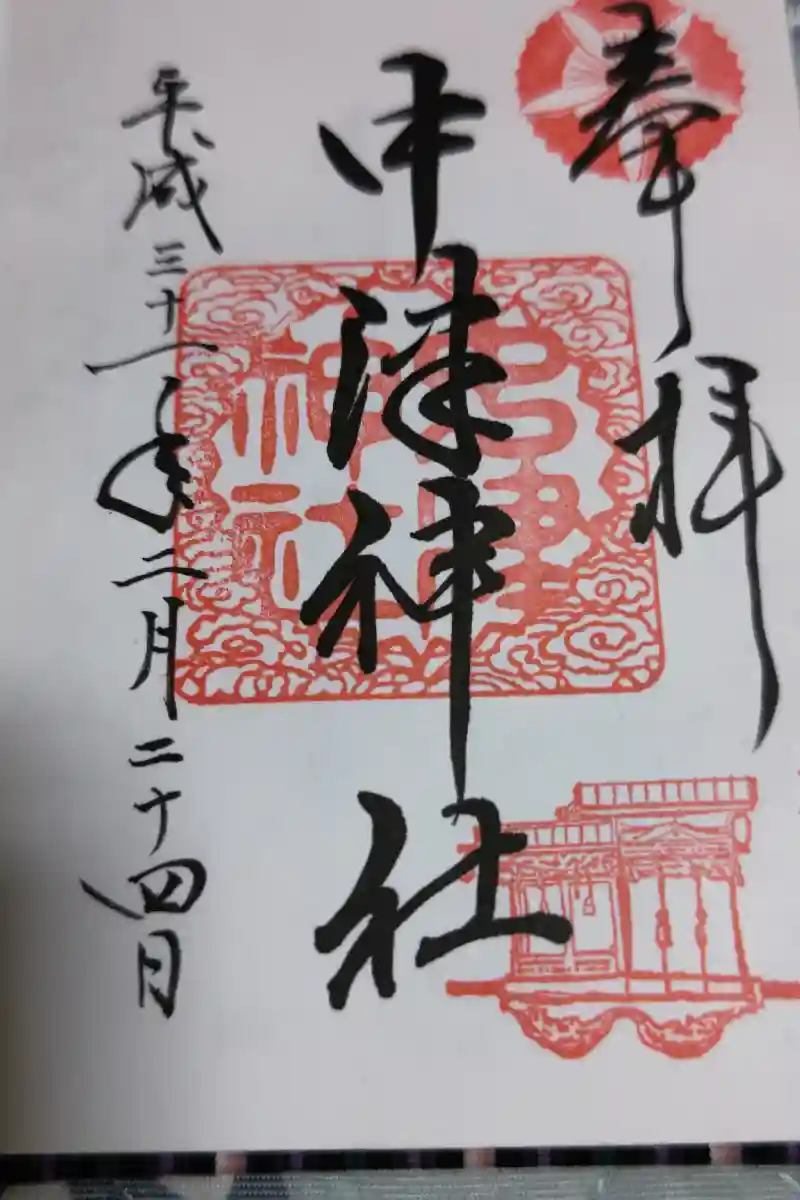 奉拝
中津神社
平成三十一年二月二十四日
神社